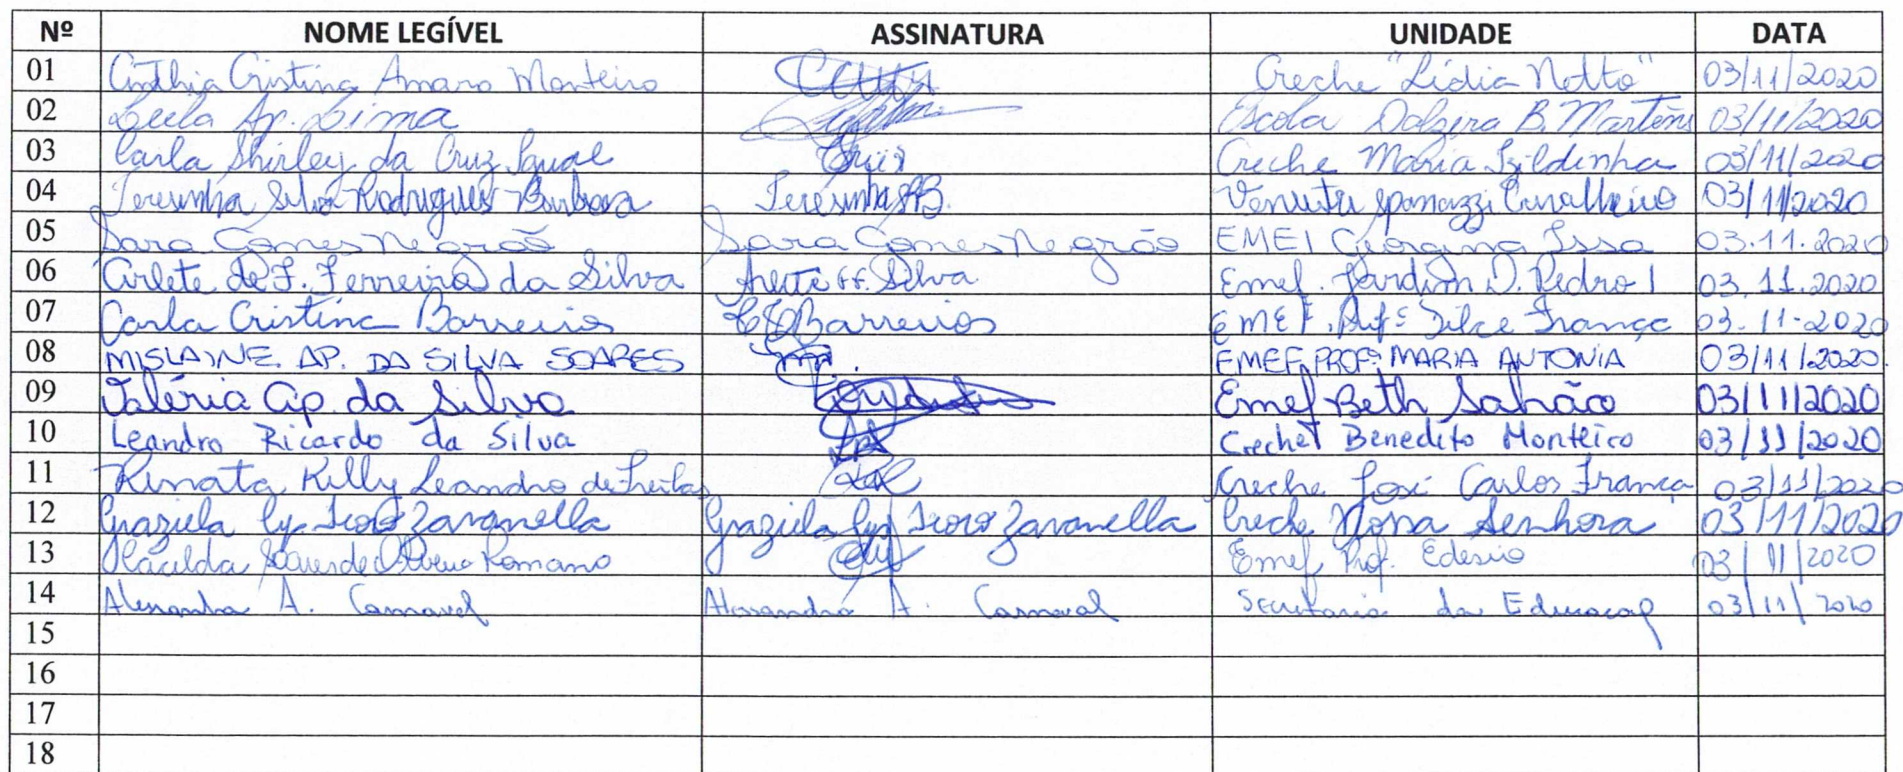 Nº NOME LEGÍVEL ASSINATURA UNIDADE DATA
01 Cinthia Cristina Amaro Monteiro Creche "Lídia Notto" 03/11/2020
02 Leila Ap. Lima Escola Dalzira B. Martins 03/11/2020
03 Carla Shirley da Cruz Creche Maria Izildinha 03/11/2020
04 Teresinha Silva Rodrigues Barbosa Teresinha 03/11/2020
05 Sara Gomes Negrão Sara Gomes Negrão EMEI Georgina Issa 03.11.2020
06 Arlete de F. Ferreira da Silva Arlete FF. Silva Emef. Jardim D. Pedro I 03.11.2020
07 Carla Cristina Barreiros Barreiros França 03.11.2020
08 MISLAINE. AP. DA SILVA SOARES EMEF PROFª MARIA ANTONIA 03/11/2020.
09 Valéria Ap. da Silva Emef Beth Sahão 03/11/2020
10 Leandro Ricardo da Silva Creche Benedito Monteiro 03/11/2020
11 Renata Kelly Leandro de Freitas Creche José Carlos França 03/11/2020
12 Graziela Zavanella Graziela Zavanella Creche Nossa Senhora 03/11/2020
13 Romano Emef Prof. Edesio 03/11/2020
14 Alessandra A. Carnaval Alessandra A. Carnaval Secretaria da Educação 03/11/2020
15
16
17
18